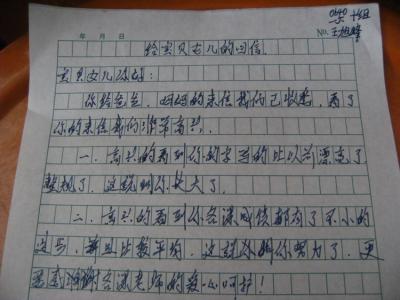 0640 十组
年 月 日 No. 王旭峰
给宝贝女儿的回信.
宝贝女儿你好:
你给爸爸、妈妈的来信我们已收悉,看了
你的来信我们非常高兴.
一、高兴的看到你的字写的比以前漂亮了
整规了,这说明你长大了.
二、高兴的看到你各课成绩都有了不小的
进步,并且比较平均,这说明你努力了,更
各课老师的爱心呵护!